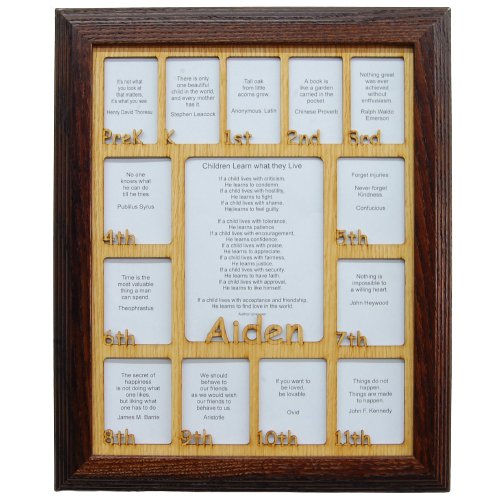 It's not what
you look at
that matters,
it's what you see.
Henry David Thoreau
PreK
There is only
one beautiful
child in the world,
and every mother
has it.
Stephen Leacock
K
Tall oak
from little
acorns grow.
Anonymous, Latin
1st
A book is
like a garden
carried in the
pocket.
Chinese Proverb
2nd
Nothing great
was ever
achieved
without
enthusiasm.
Ralph Waldo
Emerson
3rd
No one
knows what
he can do
till he tries.
Publilius Syrus
4th
Children Learn what they Live
If a child lives with criticism,
He learns to condemn.
If a child lives with hostility,
He learns to fight.
If a child lives with shame,
He learns to feel guilty.
If a child lives with tolerance,
He learns patience
If a child lives with encouragement,
He learns confidence
If a child lives with praise,
He learns to appreciate.
If a child lives with fairness,
He learns justice.
If a child lives with security,
He learns to have faith.
If a child lives with approval,
He learns to like himself.
If a child lives with acceptance and friendship,
He learns to find love in the world.
Author unknown
Aiden
Forget injuries
Never forget
Kindness.
Confucious
5th
Time is the
most valuable
thing a man
can spend.
Theophrastus
6th
Nothing is
impossible to
a willing heart.
John Heywood
7th
The secret of
happiness
is not doing what
one likes,
but liking what
one has to do
James M. Barrie
8th
We should
behave to
our friends
as we would wish
our friends to
behave to us
Aristotle
9th
If you want to
be loved,
be lovable.
Ovid
10th
Things do not
happen.
Things are made
to happen.
John F. Kennedy
11th